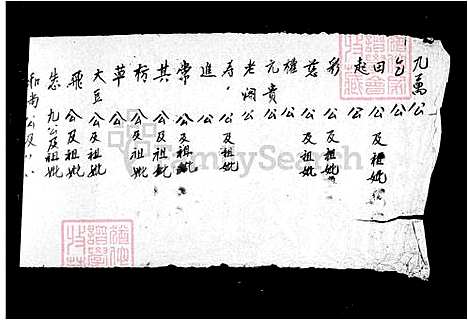 九萬公
乞公
田公及祖妣
起公
彩公及祖妣
甚公及祖妣
權公
元貴公
老烱公
寿公及祖妣
進公
常公及祖妣
其公及祖妣
枋公及祖妣
草公
大豆公及祖妣
飛公及祖妣
悲九公及祖妣
和尚公及
FamilySearch